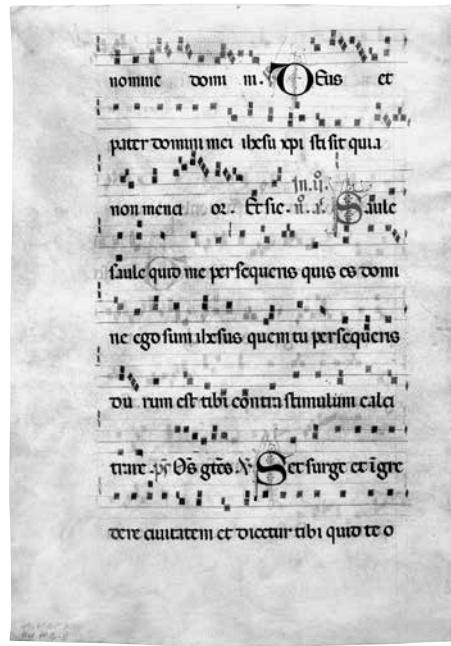 nomine domi ni. ℣ Deus et
pater domini mei ihesu xpi sit quia
non menci or. Et sic. In. ij. nͦ. a. Saule
saule quid me persequeris quis es domi
ne ego sum ihesus quem tu persequeris
du rum est tibi contra stimulum calci
trare. ps Os gtes. ℣ Set surge et igre
dere ciuitatem et dicetur tibi quid te o